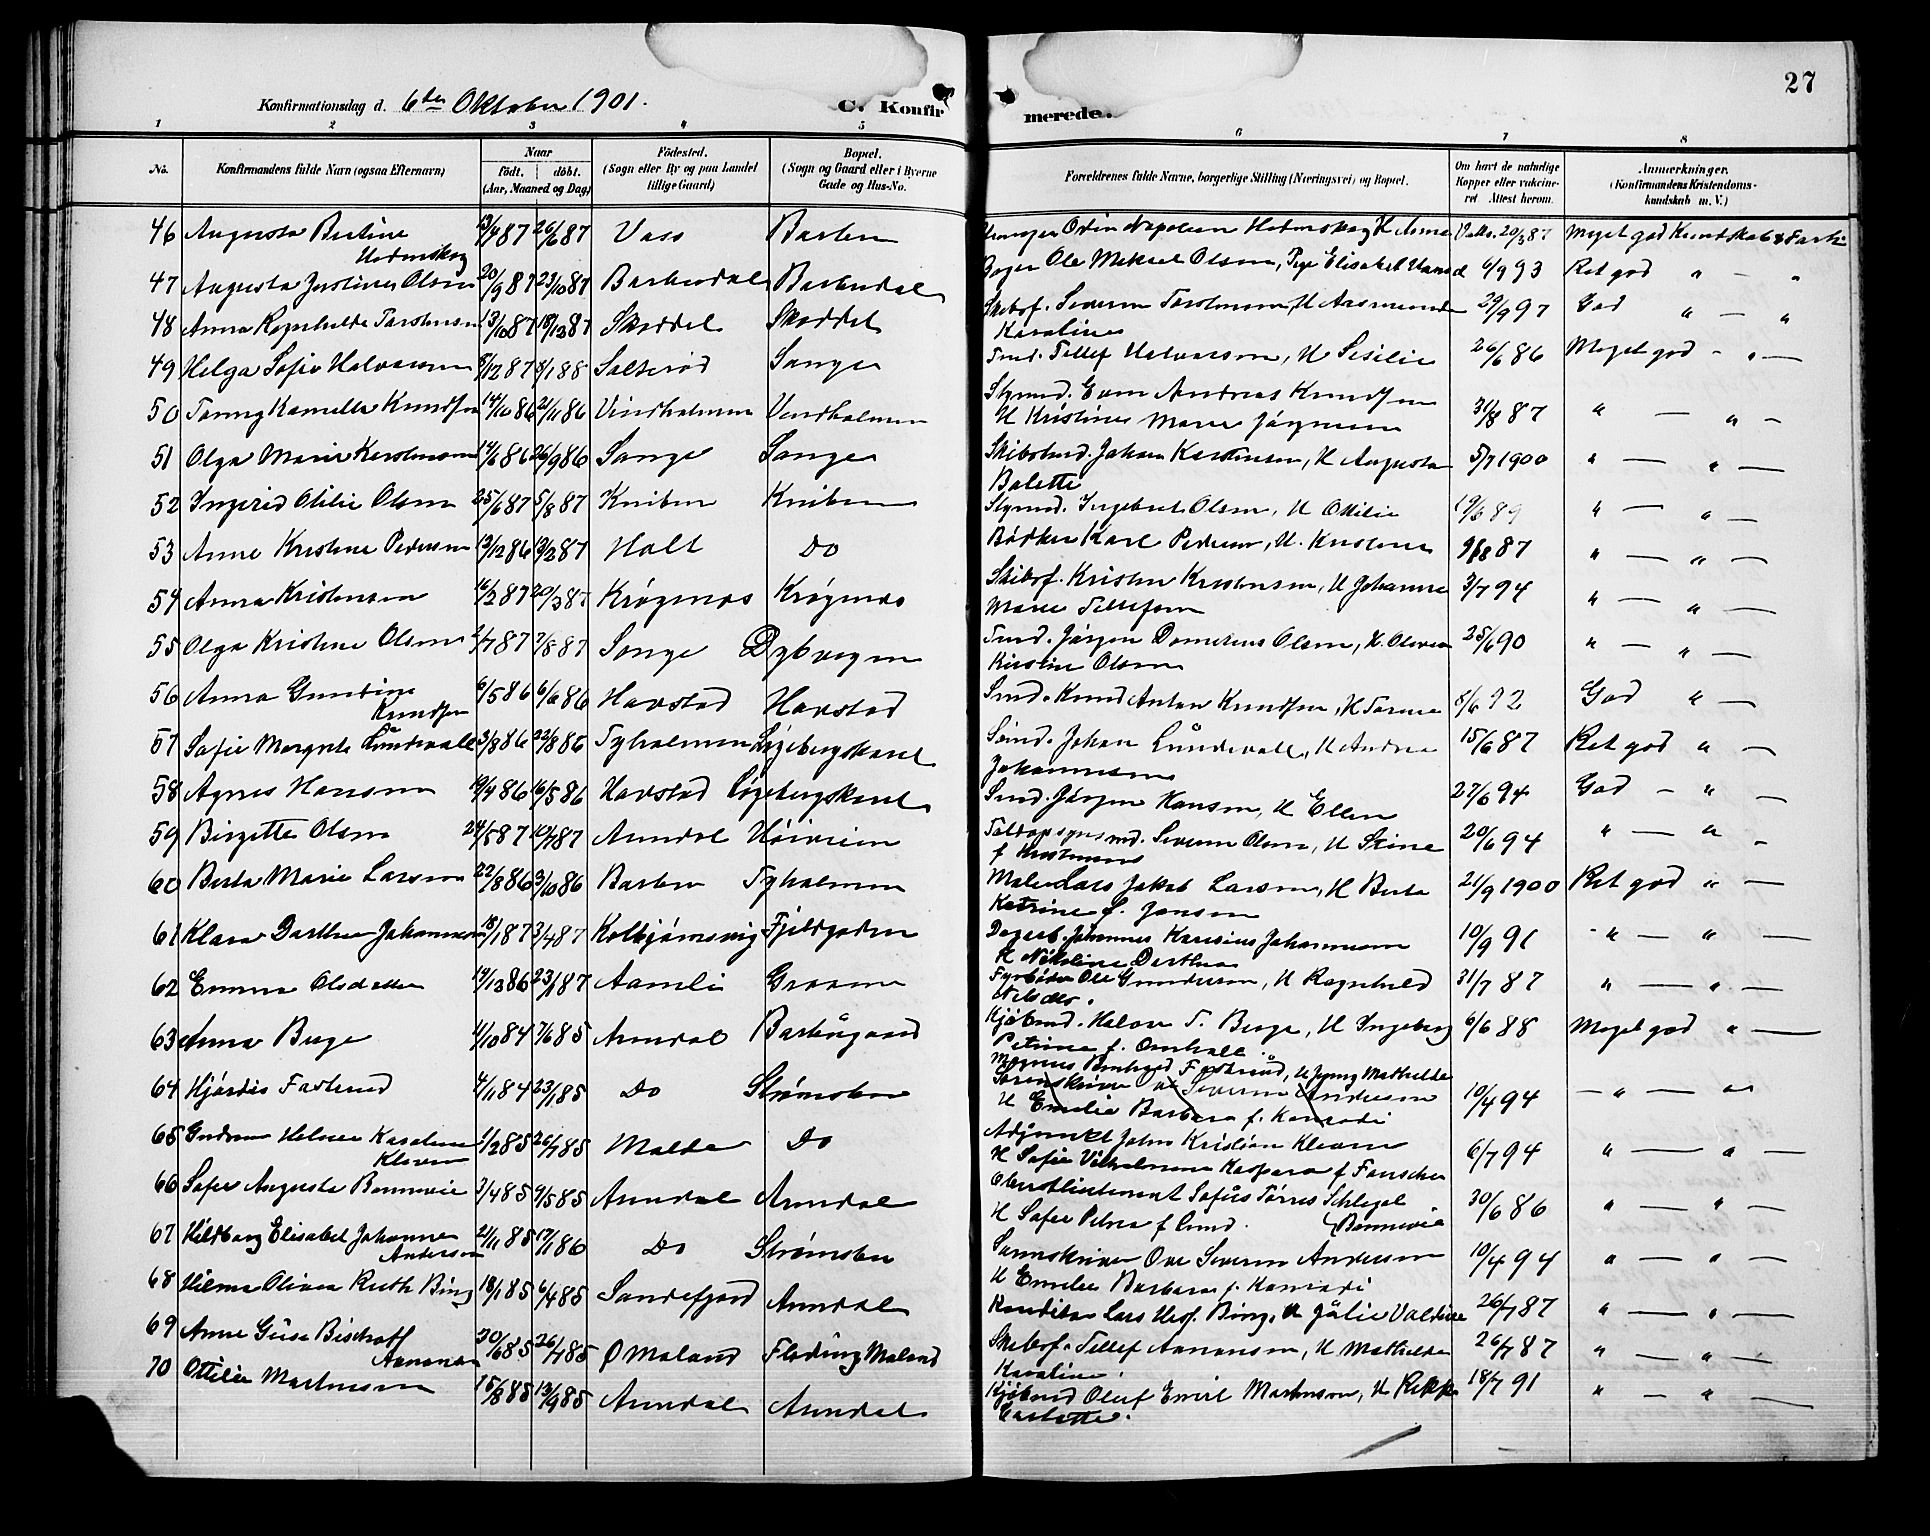 27
Konfirmationsdag d. 6te Oktober 1901. C. Konfirmerede.
1 2 3 4 5 6 7 8
No. Konfirmandens fulde Navn (ogsaa Efternavn) Naar født. døbt. (Aar, Maaned og Dag) Fødested. (Sogn eller By og paa Landet tillige Gaard) Bopæl. (Sogn og Gaard eller i Byerne Gade og Hus-No. Forældrenes fulde Navne, borgerlige Stilling (Næringsvei) og Bopæl. Om havt de naturlige Kopper eller vakcineret. Attest herom. Anmærkninger. (Konfirmandens Kristendomskundskab m. V.)
46 Augusta Bertine Holmskog 13/4 87 26/6 87 Vass Barbu Odin Napoleon Holmskog H Anna Vakc. 20/3 87 Meget god Kundskab &
47 Augusta Justine Olsen 20/9 87 23/10 87 Barbudal Barbudal Ole Mikael Olsen, Pige Elisabet 6/9 93 Ret god " — "
48 Anna Ragnhilda Torstensen 13/10 87 18/12 87 Skoddel Skoddel Skibsf. Severin Torstensen, H Karoline 29/9 97 God " — "
49 Helga Sofie Halvorsen 8/12 87 8/1 88 Salterød Songe Tmd. Tellef Halvorsen, H Sesilie 26/6 86 Meget god - " —
50 Tomny Kamilla Knudsen 14/10 86 21/11 86 Vindholmen Vindholmen Styrmd. Even Andreas Knudsen H Kristine Marie Jørgensen 31/8 87 " — " —
51 Olga Marie Karstensen 14/6 86 26/9 86 Songe Songe Johan Karstensen, H Augusta Bolette 5/7 1900 " — " —
52 Ingerid Otilie Olsen 25/6 87 5/8 87 Kniben Kniben Styrmd. Ingebret Olsen, H Ottilie 19/6 89 " — " —
53 Anne Kristine Pedersen 13/12 86 13/2 87 Holt Do Bødker Karl Pedersen, H. Kristine 9/8 87 " — " —
54 Anna Kristensen 16/2 87 20/3 87 Krøgenes Krøgenes Skibsf. Kristen Kristensen, H Johanne Marie Tellefsen 3/7 94 " — " —
55 Olga Kristine Olsen 2/7 87 7/8 87 Songe Dybvegen Tmd. Jørgen Olsen, H. Kirstine Olsen 25/6 90 " — " —
56 Anna Gunbine Knudsen 6/5 86 6/6 86 Havstad Havstad Smd. Knud Anton Knudsen, H 8/6 92 God " —
57 Sofie Margrete Lundevall 3/8 86 22/8 86 Tyholmen Løgebergskaret Sømd. Johan Lundevall, H Andrea Johannesen 15/6 87 Ret god " —
58 Agnes Hansen 19/4 86 16/5 86 Havstad Løgebergskaret Smd. Jørgen Hansen, H Ellen 27/6 94 God - " —
59 Birgette Olsen 24/5 87 10/7 87 Arendal Høiveien Toldopsynsmd. Severin Olsen, H Stine f Kristensen 20/6 94 " — " -
60 Berta Marie Larsen 22/8 86 3/10 86 Barbu Tyholmen Maler Lars Jakob Larsen, H Berta Katrine f. Jensen 21/9 1900 Ret god " —
61 Klara Dorthea Johannesen 18/1 87 3/4 87 Kolbjørnsvig Fjeldgaden Dagarb. Johannes Johannesen H Nikoline Dorthea 10/9 91 - " — " —
62 Emma Olsdatter 14/12 86 23/1 87 Aamli Groom Fyrbøder Ole Gundersen, H Ragnhild Nilsdtr. 31/7 87 " — " —
63 Anna Berge 4/10 84 7/6 85 Arendal Barbugaard Kjøbmd. Halvor T. Berge, H Ingeborg Petrine f. Omholt 6/6 88 Meget god " —
64 Hjørdis Fasterud 4/11 84 23/1 85 Do Strømsbu Magnus Bernhard, H Jenny Mathilde Sorenskriver Ove Severin Andersen H Emelie Barbara f. Konradi 10/4 94 — " — "
65 Gudrun Helene Karoline Klaven 1/2 85 26/7 85 Molde Do Adjunkt John Kristian Klaven H Sofie Vilhelmine Kaspara f Fanscher 6/7 94 " — " —
66 Sofie Augusta Bonnevie 2/4 85 9/5 85 Arendal Arendal Oberstlieutenant Sofus Tørres Schlegel Bonnevie H Sofie Petrea f Lund. 30/6 86 " — " —
67 Hildborg Elisabet Johanne Andersen 21/11 85 17/1 86 Do Strømsbu Sorenskriver Ove Severin Andersen H Emelie Barbara f. Konradi 10/4 94 " — " —
68 Hilma Olivia Ruth Bing 18/1 85 6/4 85 Sandefjord Arendal Konditor Lars Bing, H Julie 26/7 87 " — " —
69 Anne Gusa Bischoff Aanonsen 30/6 85 26/7 85 Ø Moland Flødvig Moland Skibsf. Tellef Aanonsen, H Mathilde Karoline. 26/7 87 " — " —
70 Ottilie Martinsen 15/8 85 13/9 85 Arendal Arendal Kjøbmd Oluf Emil Martinsen, H Charlotte. 18/7 91 " — " —